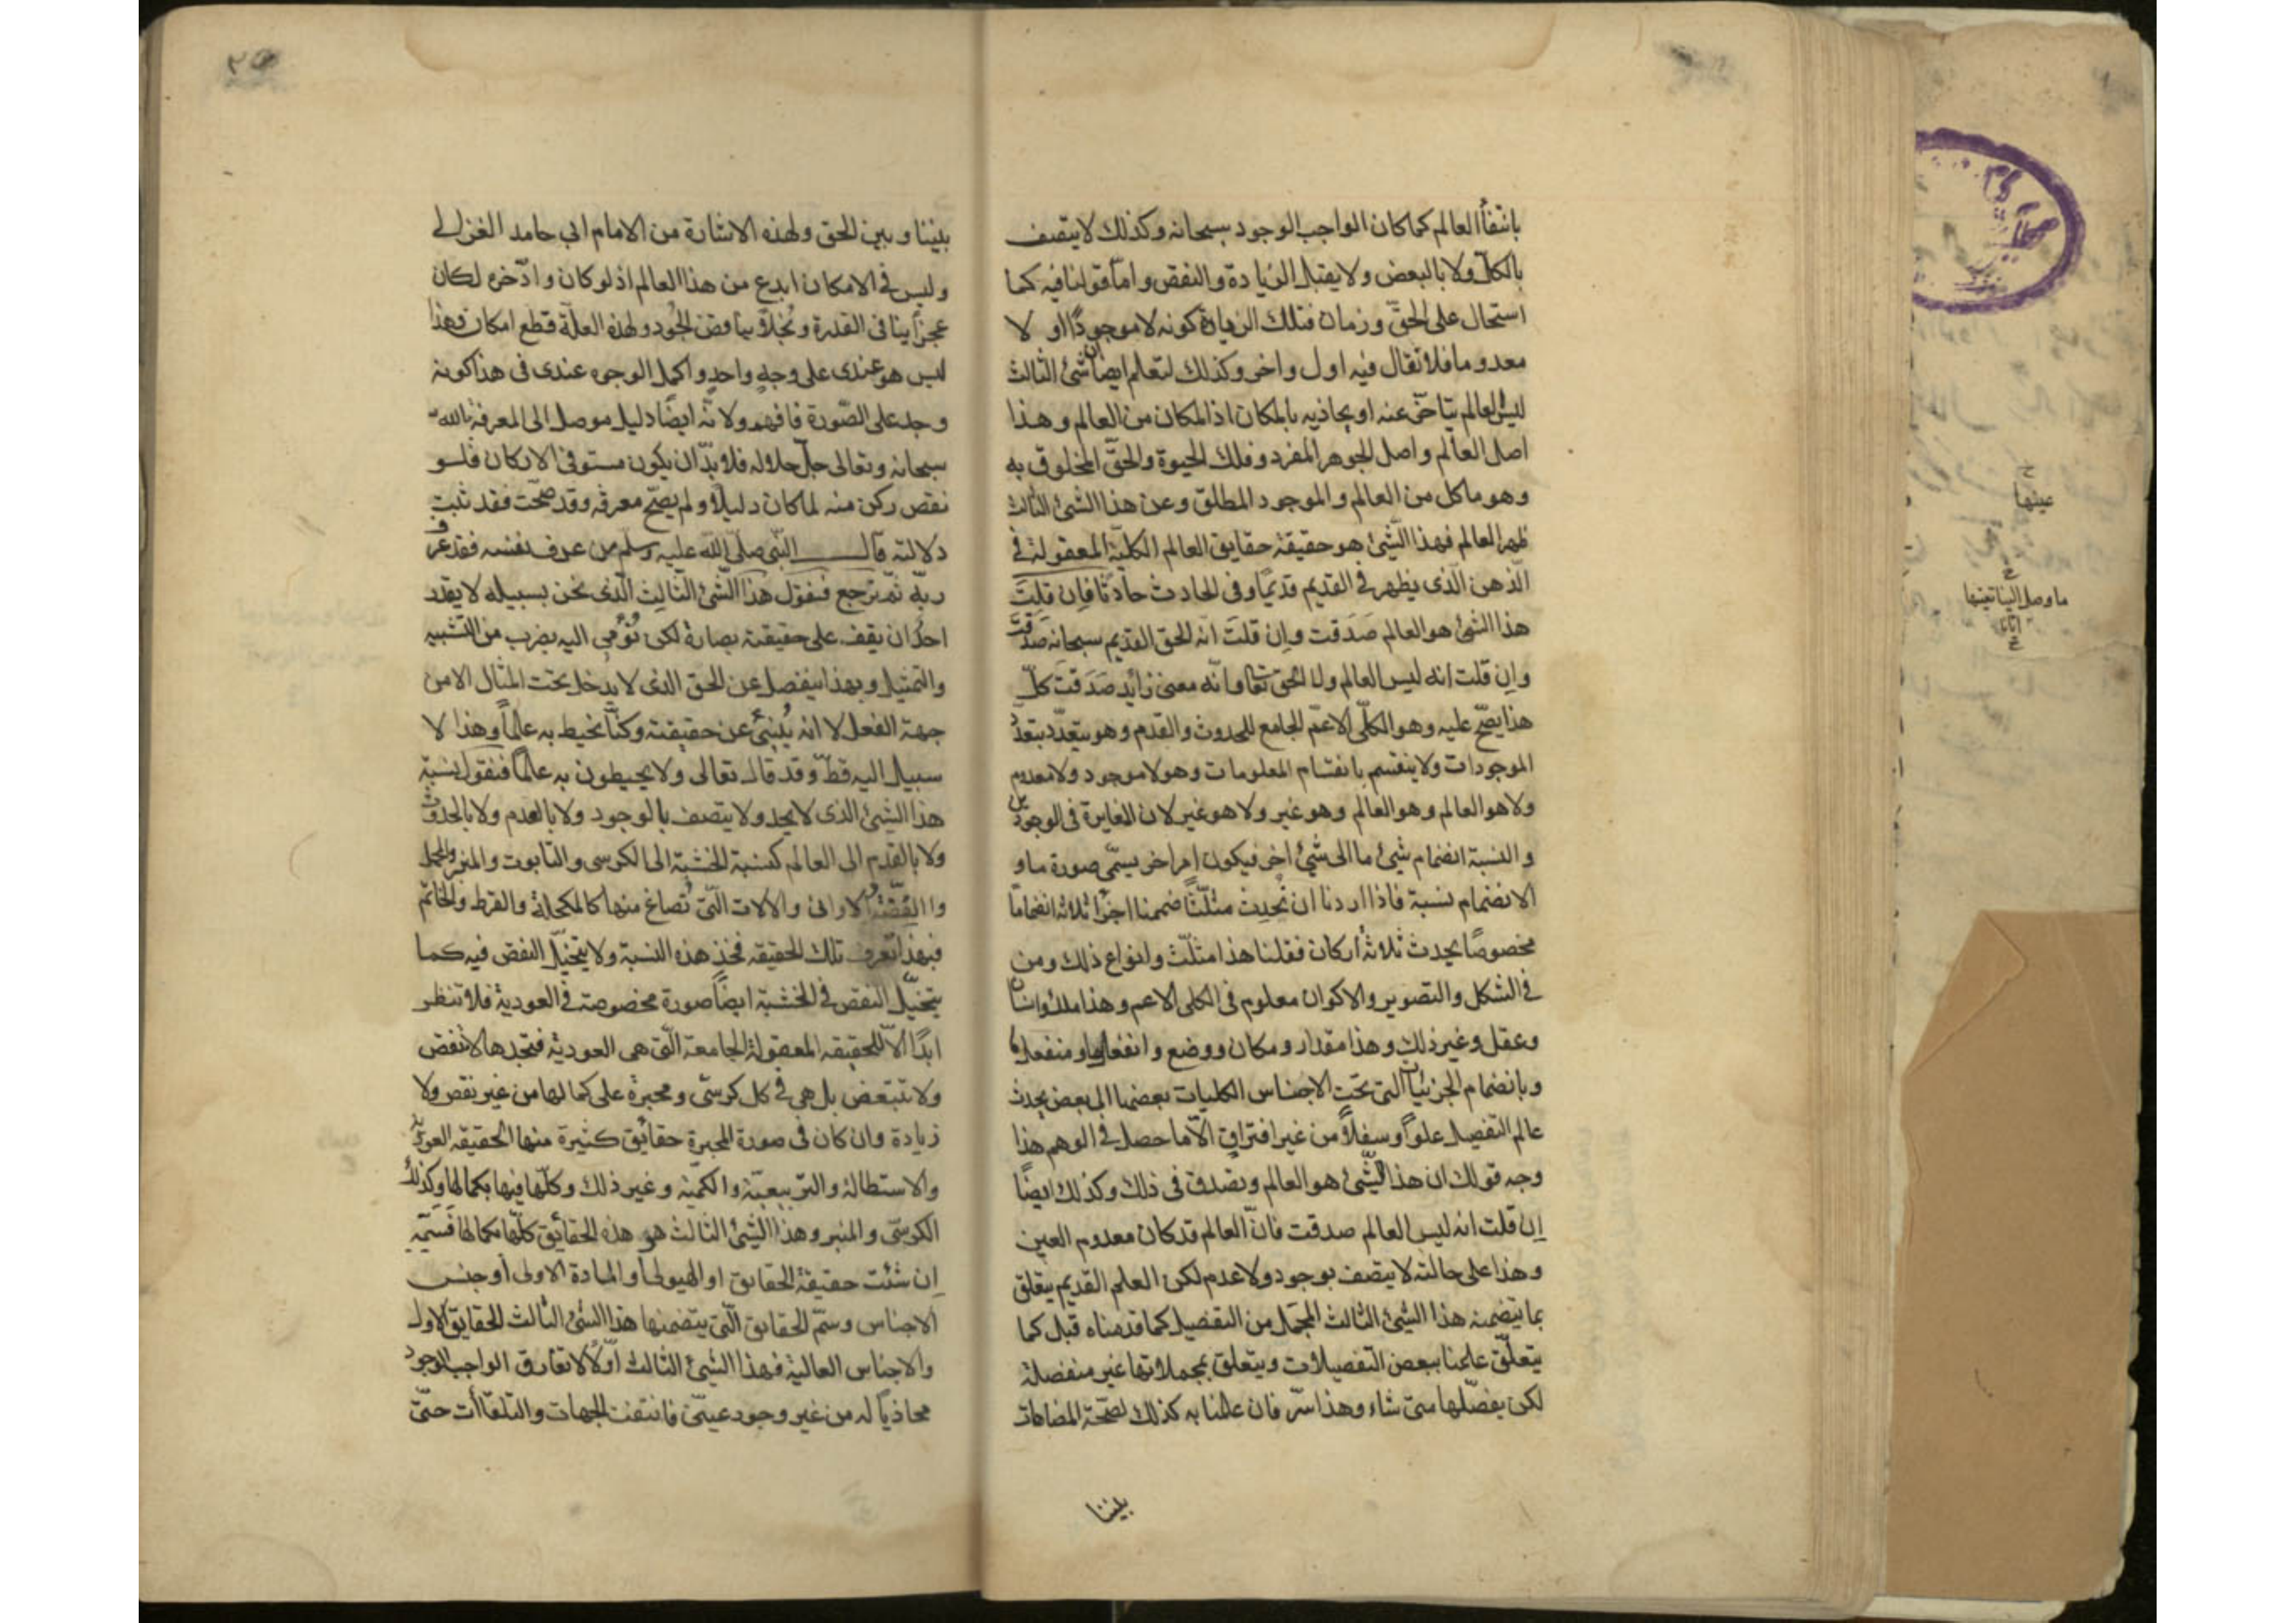 بانتفأ العالم كما كان الواجب الوجود سبحانه وكذلك لا يتصف
بالكل ولا بالبعض ولا يقبل الزيادة والنقص واما قولنا فيه كما
استحال على الحق وزمان فتلك الزيادة كونه لا موجودًا او لا
معدوما فلا تقال فيه اول واخر وكذلك لتعلم ايضا ان شئ الثالث
ليس العالم يتأخر عنه او يحاذيه بالمكان اذ المكان من العالم وهذا
اصل العالم واصل الجوهر المفرد وفلك الحيوة والحق المخلوق به
وهو ما كل من العالم والموجود المطلق وعن هذا الشئ الثالث
ظهر العالم فهذا الشئ هو حقيقة حقايق العالم الكلية المعقولة في
الذهن الذى يظهر في القديم قديمًا وفى الحادث حادثًا فان قلت
هذا الشئ هو العالم صَدَقت وإن قلتَ انه الحق القديم سبحانه صدقت
وإن قلت انه ليس العالم ولا الحق تعا وانه معنى زائد صَدَقتَ كلّ
هذا يصحّ عليه وهو الكلّى الاعمّ الجامع للحدوث والقدم وهو يتعدّد بتعدّد
الموجودات ولا ينقسم بانقسام المعلومات وهو لا موجود ولا معدوم
ولا هو العالم وهو العالم وهو غير ولا هو غير لان المغايرة فى الوجودين
والنسبة انضمام شئ ما الى شئ اخر فيكون امرا خر يسمّى صورة ما و
الانضمام نسبة فاذا اردنا ان نُحدِث مثلّثًا ضممنا اجزأ ثلاثة انضمامًا
مخصوصًا يحدث ثلاثة أركان فقلنا هذا مثلّث وانواع ذلك ومن
في الشكل والتصوير والاكوان معلوم فى الكلى الاعم وهذا ملك وانسان
وعقل وغير ذلك وهذا مقدار ومكان ووضع وانفعال ومنفعل
وبانضمام الجزئيات التى تحت الاجناس الكليات بعضها الى بعض يحدث
عالم التفصيل علوًا وسفلاً من غير افتراق الا ما حصل في الوهم هذا
وجه قولك ان هذا الشّئ هو العالم وتصدق فى ذلك وكذلك ايضًا
إن قلت انه ليس العالم صدقت فانّ العالم قد كان معدوم العين
وهذا على حالته لا يتصف بوجود ولا عدم لكن العلم القديم يتعلق
بما يتضمنه هذا الشئ الثالث المجمل من التفصيل كما قدمناه قبل كما
يتعلّق علمنا ببعض التفصيلات ويتعلق بمجملاتها غير منفصلة
لكن يفصّلها متى شاء وهذا سرّ فان علمنا به كذلك لصحّة المضاهات
بيننا
بيننا وبين الحق ولهذه الاشارة من الامام ابى حامد الغزالى
وليس في الامكان ابدع من هذا العالم اذ لو كان وادّخره لكان
عجزًا ينافى القدرة وبُخلاً يناقض الجُود ولهذه العلّة قطع امكان وهذا
ليس هو عندى على وجهٍ واحدٍ واكمل الوجوه عندى فى هذا كونه
وجد على الصّورة فافهم ولانّه ايضًا دليل موصل الى المعرفة بالله
سبحانه وتعالى جلّ جلاله فلا بدّ ان يكون مستوفى الاركان فلو
نقص ركن منه لما كان دليلاً ولم يصحّ معرفه وقد صحّت فقد ثبت
دلالته قال النّبى صلى الله عليه وسلم من عرف نفسه فقد عرف
ربّه ثمّ نرجع فنقول هذا الشّئ الثّالث الّذى نحن بسبيله لا يقدر
احدُ ان يقف على حقيقته بصارة لكن نُؤْمِى اليه بضرب من التشبيه
والتمثيل وبهذا ينفصل عن الحق الذى لا يدخل تحت المثال الا من
جهة الفعل لا انه يُنبئ عن حقيقته وكنّا نحيط به علمًا وهذا لا
سبيل اليه قطّ وقد قال تعالى ولا يحيطون به علمًا فنقول نسبة
هذا الشئ الذى لا يحد ولا يتصف بالوجود ولا بالعدم ولا بالحدوث
ولا بالقدم الى العالم كنسبة الخشبة الى الكرسى والتابوت والمنبر والمحمل
واالفضّة والاوانى والالات التّى تُصاغ منها كالمكحلة والقرط والخاتم
فبهذا تعرف تلك الحقيقه فخذ هذه النسبة ولا يتخيّل النقص فيه كما
يتخيّل النقص في الخشبة ايضًا صورة مخصوصة في العودية فلا تنظر
ابدًا الاّ للحقيقه المعقولة الجامعة التّى هى العودية فتجدها لا تنقص
ولا تتبعض بل هى في كل كرسّى ومحبرة على كمالها من غير نقص ولا
زيادة وان كان فى صورة المحبرة حقائق كثيرة منها الحقيقه العوديّة
والاستطالة والتربيعيّة والكميّة وغير ذلك وكلّها فيها بكمالها وكذلك
الكرسّى والمنبر وهذا الشّئ الثالث هو هذه الحقائق كلّها بكمالها فَسَمِّه
إن شئت حقيقة الحقايق او الهيولى او المادة الاولى او جنس
الاجناس وسمّ الحقايق الّتى يتضمنها هذا الشئ الثالث الحقايق الاول
والاجناس العالية فهذا الشئ الثالث أوّلاً لا تفارق الواجب الوجود
محاذيًا له من غير وجود عينىّ فانتفت الجهات والتلقاأت حتّى
عينها
ما وصل الينا تعينها